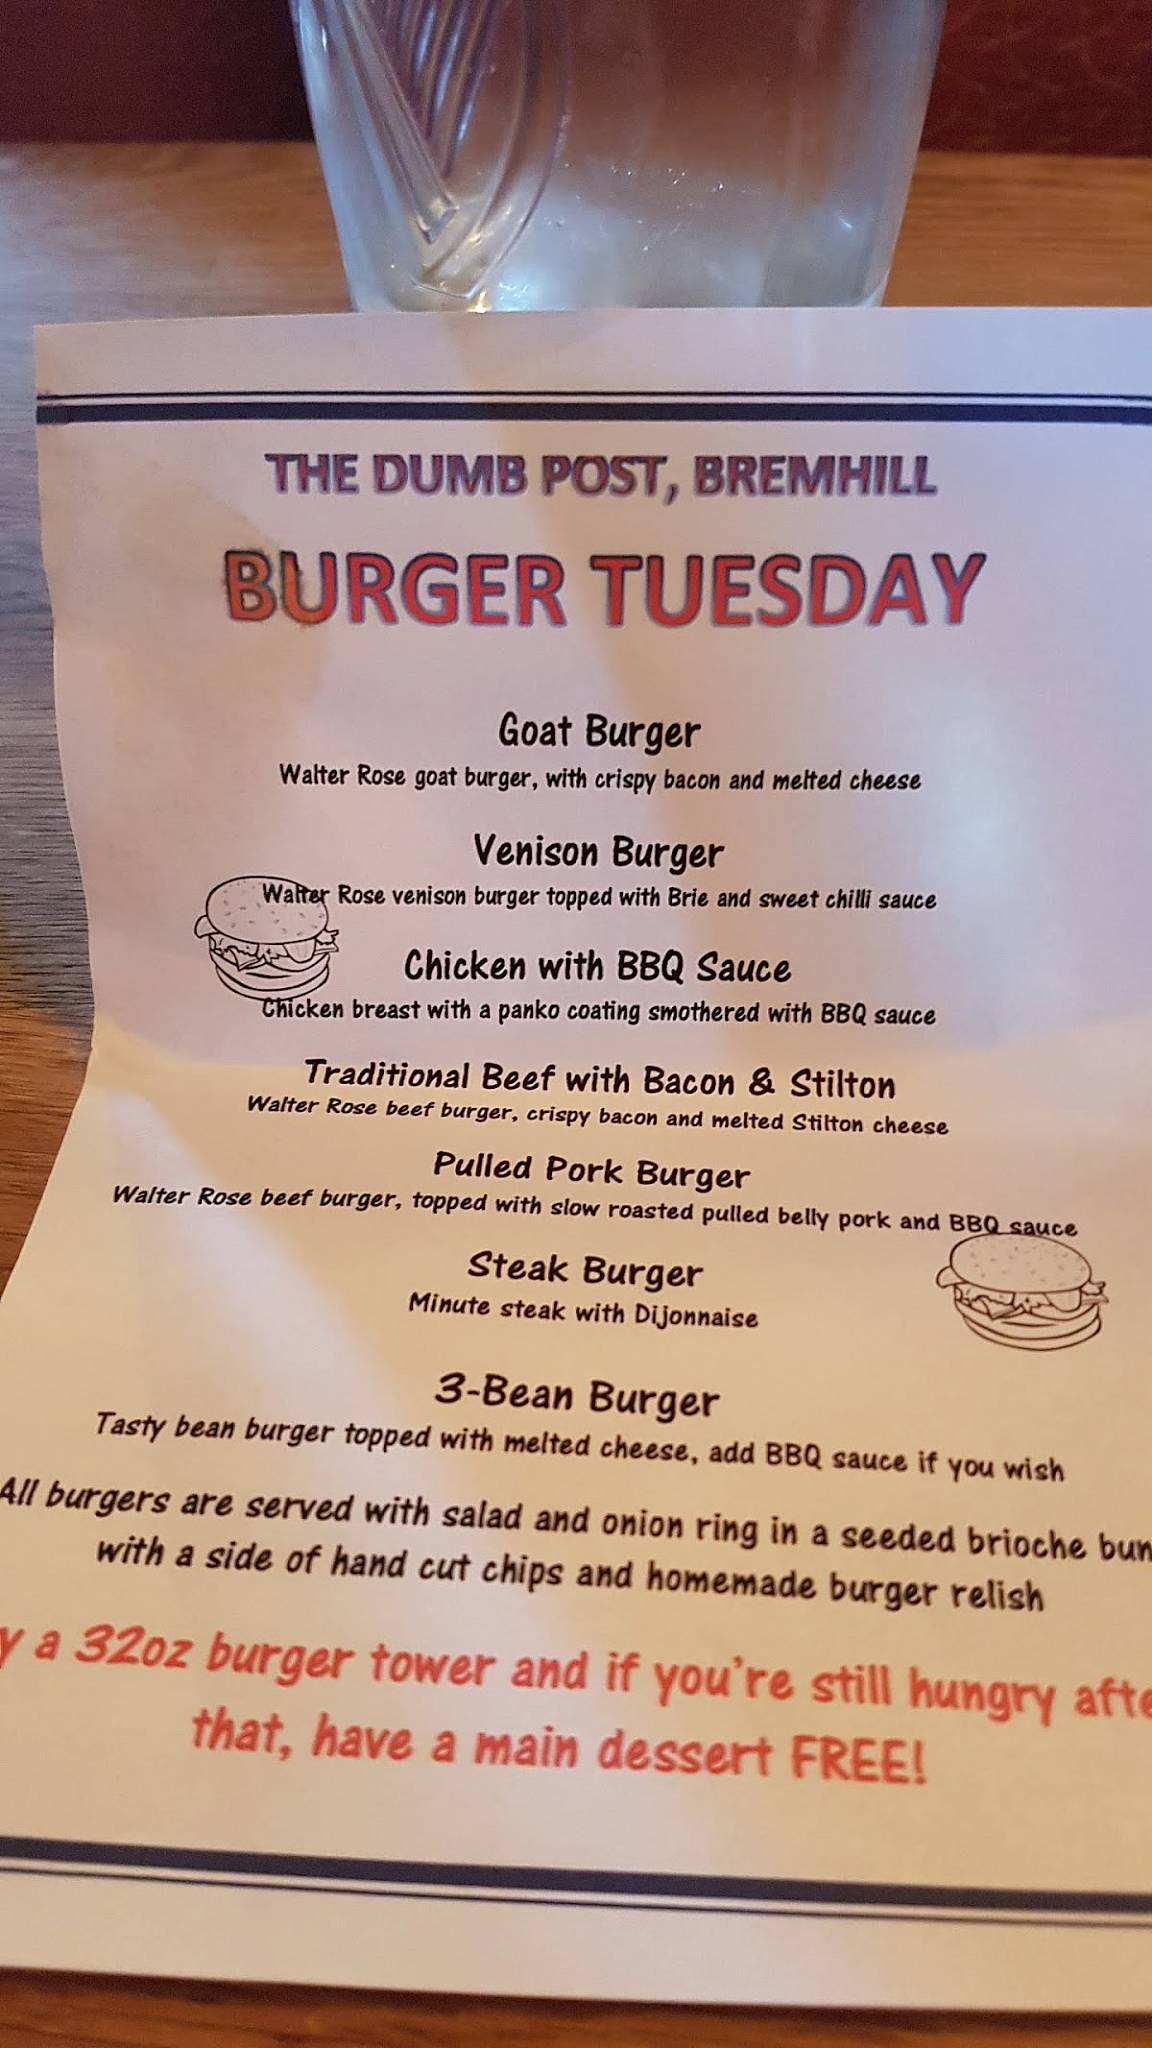 THE DUMB POST, BREMHILL
BURGER TUESDAY
Goat Burger
Walter Rose goat burger, with crispy bacon and melted cheese
Venison Burger
Walter Rose venison burger topped with Brie and sweet chilli sauce
Chicken with BBQ Sauce
Chicken breast with a panko coating smothered with BBQ sauce
Traditional Beef with Bacon & Stilton
Walter Rose beef burger, crispy bacon and melted Stilton cheese
Pulled Pork Burger
Walter Rose beef burger, topped with slow roasted pulled belly pork and BBQ sauce
Steak Burger
Minute steak with Dijonnaise
3-Bean Burger
Tasty bean burger topped with melted cheese, add BBQ sauce if you wish
All burgers are served with salad and onion ring in a seeded brioche bun
with a side of hand cut chips and homemade burger relish
a 32oz burger tower and if you're still hungry
that, have a main dessert FREE!